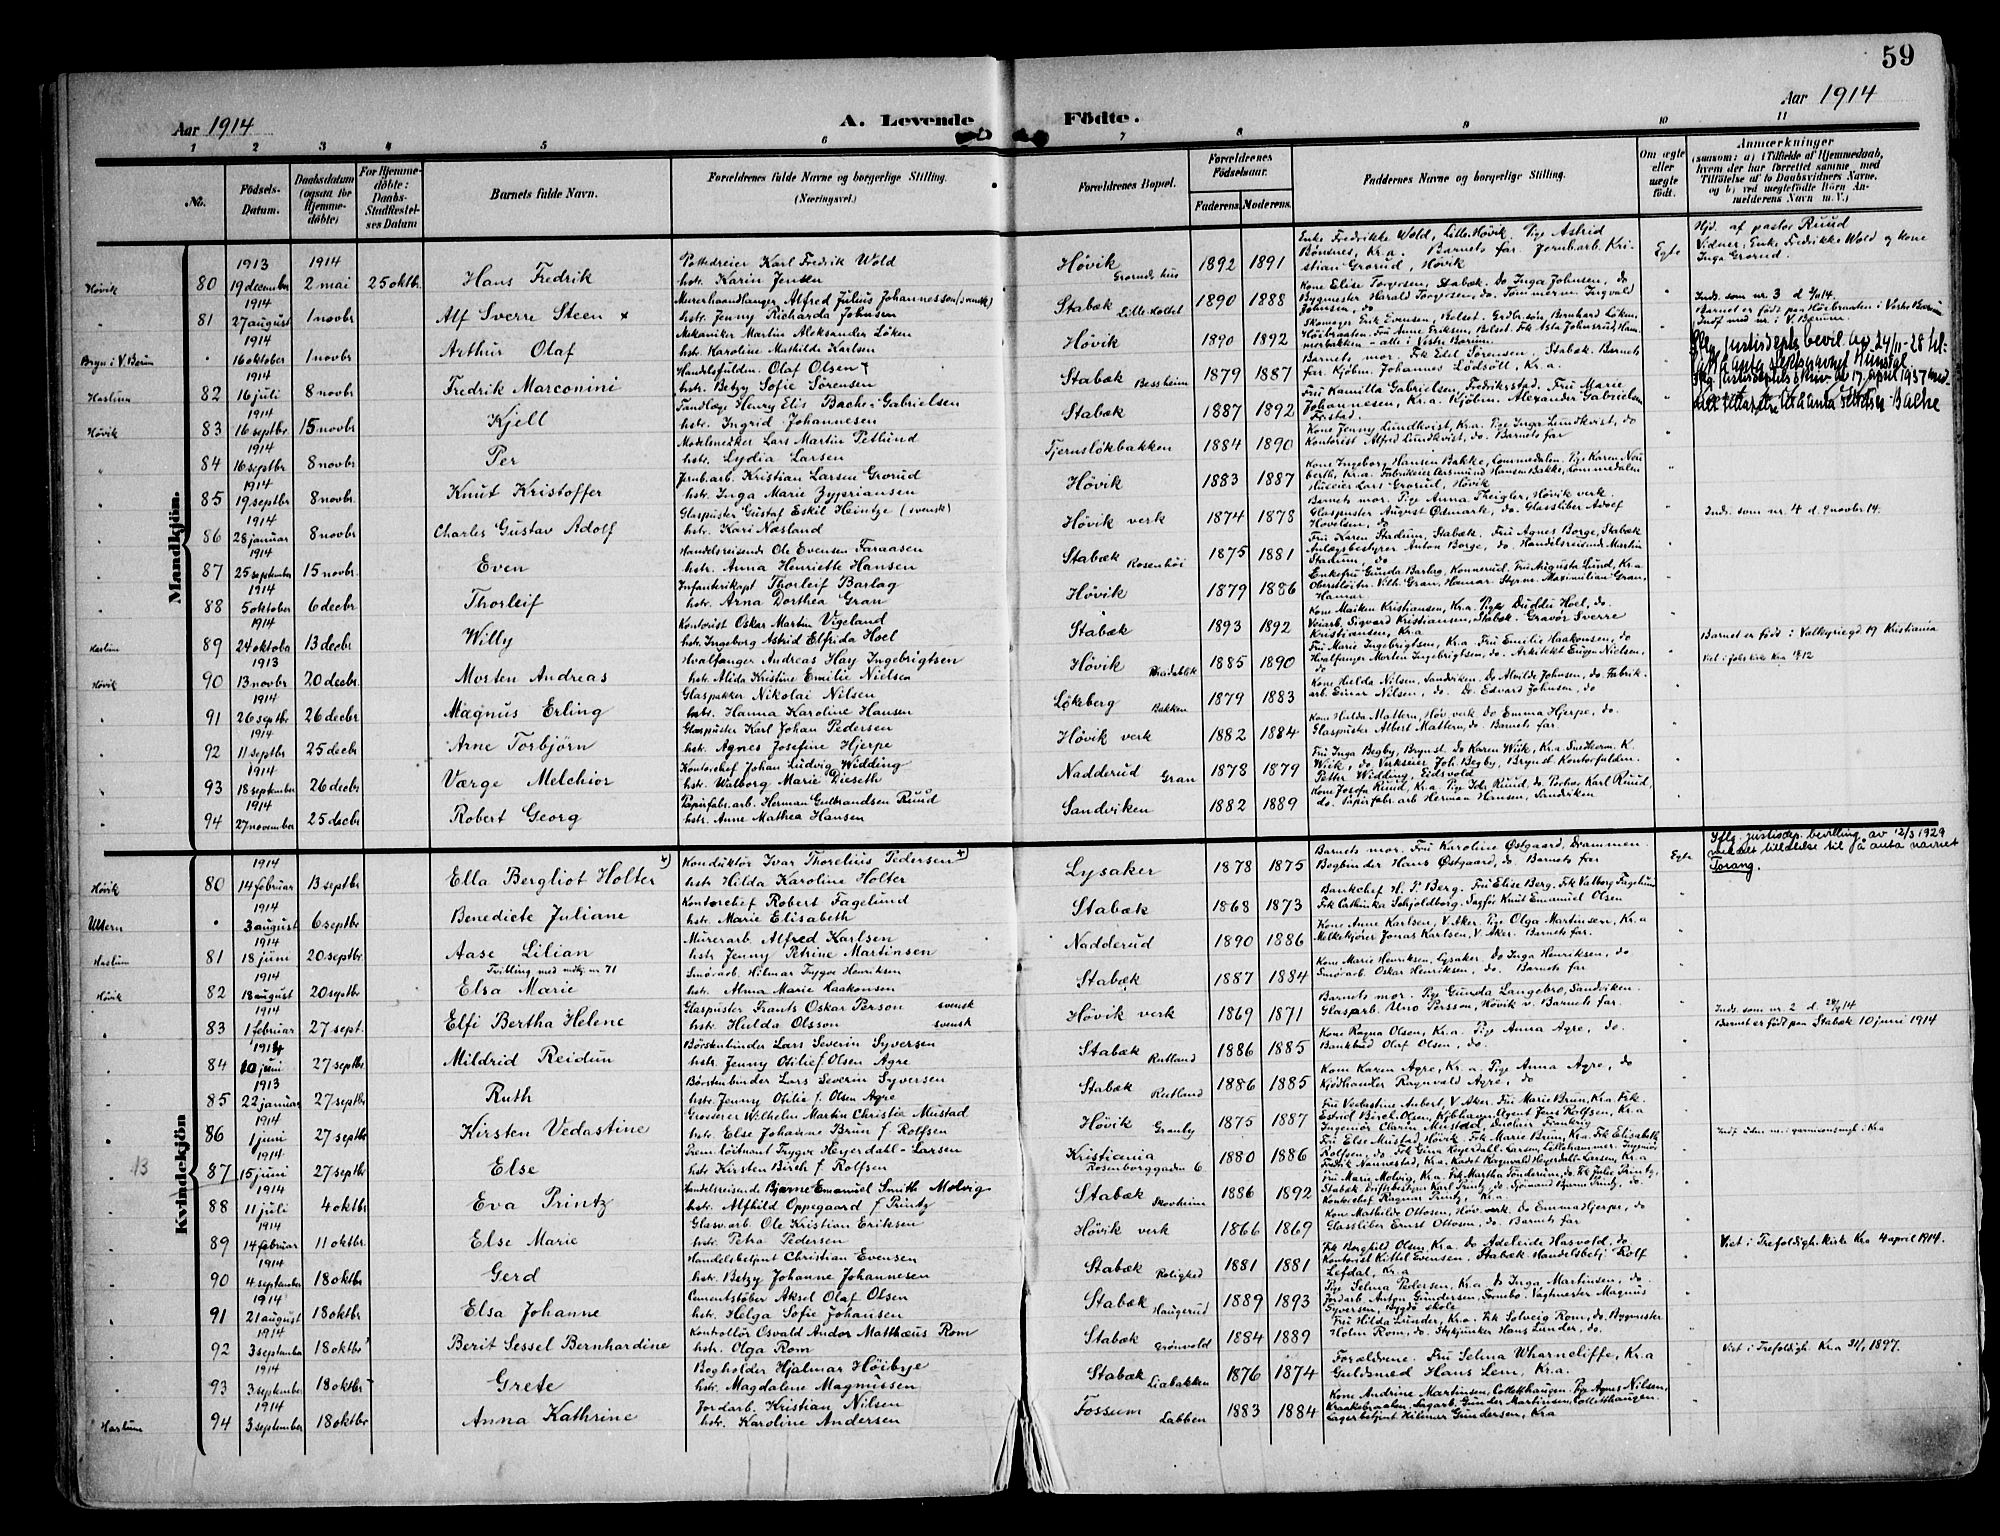 59
Aar 1914
A. Levende
Födte.
Aar 1914
1 2 3 4 5 6 7 8 9 10 11
No.
Födsels-Datum.
Daabsdatum (ogsaa for Hjemmedöbte)
For Hjemmedöbte: Daabs-Stadfæstelses Datum
Barnets fulde Navn.
Forældrenes fulde Navne og borgerlige Stilling. (Næringsvei.)
Forældrenes Bopæl.
Forældrenes Födselsaar.
Faderens. Moderens.
Faddernes Navne og borgerlige Stilling.
Om ægte eller uægte födt.
Anmærkninger
(saasom: a) i Tilfælde af Hjemmedaab, hvem der har forrettet samme med Tilföielse af to Daabsvidners Navne, og b) ved uægtefödte Börn Anmelderens Navn m. V.)
Mandkjön.
Hövik 80 1913 19 december 1914 2 mai 25 oktbr. Hans Fredrik Pottedreier Karl Fredrik Wold hstr. Karin Jensen Hövik Groruds hus 1892 1891 Enke Fredrikke Wold, Lille Hövik. Pige Astrid Bönsnes, Kr.a. Barnets far Jernbarb. Kristian Grorud, Hövik Egte Hjd. af pastor Ruud Vidner: Enke Fredrikke Wold og Kone Inga Grorud.
" 81 1914 27 august 1 novbr Alf Sverre Steen x Murerhaandlanger Alfred Julius Johannesson (svensk) hstr. Jenny Richarda Johnsen Stabæk Lillekollet 1890 1888 Kone Elise Torgersen, Stabæk. Do Inga Johnsen, do Bygmester Harald Torgersen, do. Tömmerm. Ingvald Johnsen, do " Inds. som nr. 3 d
Bryn i V. Bærum " 1914 16 oktober 1 novbr Arthur Olaf Mekaniker Martin Aleksander Löken hstr. Karoline Mathilde Karlsen Hövik 1890 1892 Skomager Erik Evensen, Belset. Bernhard Löken, Höibraaten. Fru Anna Eriksen, Belset. Frk Asta Johnsrud, Hammerbakken - alle i Vestre Bærum. " Barnet er født paa Höibraaten i Vestre Bærum Indf med nr. i V. Bærum.
Haslum 82 1914 16 juli 8 novbr Fredrik Marconini Handelsfuldm. Olaf Olsen hstr. Betzy Sofie Sörensen Stabæk Bessheim 1879 1887 Barnets mor. Frk Edel Sörensen. Stabæk. Barnets far. Kjöbm. Johannes Lödsött, Kr.a. " Iflg. justisdepts bevil. av 24/11-28 til
Hövik 83 1914 16 septbr. 15 novbr Kjell Tandlæge Henry Elis Bache-Gabrielsen hstr. Ingrid Johannesen Stabæk 1887 1892 Fru Kamilla Gabrielsen, Fredriksstad. Fru Marie Johannesen, Kr.a. Kjöbm. Alexander Gabrielsen Fr.stad. " 17 april 1937 med Bache
" 84 1914 16 septbr 8 novbr Per Modelsnedker Lars Martin Petlund hstr. Lydia Larsen Tjernsløkbakken 1884 1890 Kone Jenny Lundkvist, Kr.a. Pige Inga Lundkvist, do Kontorist Alfred Lundkvist, do. Barnets far "
" 85 1914 19 septbr 8 novbr Knut Kristoffer Jernb.arb. Kristian Larsen Grorud hstr. Inga Marie Zypriansen Hövik 1883 1887 Kone Ingeborg Hansen Bakke, Lommedalen. Pige Karen Norberth, Kr.a. Fabrikeier Aasmund Hansen Bakke, Lommedalen Huseier Lars Grorud, Hövik "
" 86 1914 28 januar 8 novbr Charles Gustav Adolf Glaspuster Gustaf Eskil Heintze (svensk) hstr. Kari Næsland Hövik verk 1874 1878 Barnets mor. Pige Anna Theigler, Hövik verk. Glaspuster August Östmark, do. Glassliber Adolf Hovelsen, do " Inds. som nr. 4 d. 9 novbr 14.
" 87 1914 25 september 15 novbr. Even Handelsreisende Ole Evensen Faraasen hstr. Anna Henriette Hansen Stabæk Rosenhöi 1875 1881 Fru Karen Stadum, Stabæk. Fru Agnes Borge, Stabæk Anlægsbestyrer Anton Borge, do. Handelsreisende Martin Stadum, do "
" 88 1914 5 oktober 6 decbr. Thorleif Infanterikapt Thorleif Barlag hstr. Arna Dorthea Gran Hövik 1879 1886 Enkefru Gunda Barlag, Konnerud. Fru Augusta Lund, Kr.a Oberstløitn. Vilh. Gran, Hamar. Styrm. Maximilian Gran, Hamar "
Haslum 89 1914 24 oktober 13 decbr. Willy Kontorist Oskar Martin Vigeland hstr. Ingeborg Astrid Elfrida Hoel Stabæk 1893 1892 Kone Maiken Kristiansen, Kr.a. Pige Duddu Hoel, do. Veiarb. Sigvard Kristiansen, Stabæk. Gravör Sverre Kristiansen, Kr.a " Barnet er född i Valkyriegd 19 Kristiania
Hövik 90 1913 13 novbr 20 decbr. Mosten Andreas Hvalfanger Andreas Hay Ingebrigtsen hstr. Alida Kristine Emilie Nielsen Hövik Bradablik 1885 1890 Fru Marie Ingebrigtsen, Kr.a. Fru Emilie Haakonsen, do Hvalfanger Morten Ingebrigtsen, do. Arkitekt Eugen Nielsen, do " Viet i Jakobs kirke Kra 1912
" 91 1914 26 septbr 26 decbr. Magnus Erling Glaspakker Nikolai Nilsen hstr. Hanna Karoline Hansen Lökeberg Bakken 1879 1883 Kone Helda Nilsen, Sandviken. Do Alvilde Johnsen, do. Fabrikarb. Einar Nilsen, do. Do. Edvard Johnsen, do "
" 92 1914 11 septbr 25 decbr. Arne Torbjörn Glaspuster Karl Johan Pedersen hstr. Agnes Josefine Hjerpe Hövik verk 1882 1884 Kone Hulda Mattern, Höv. verk. Do Emma Hjerpe, do. Glaspuster Albert Mattern, do. Barnets far "
" 93 1914 18 september 26 decbr. Værge Melchior Kontorchef Johan Ludvig Widding hstr. Walborg Marie Dieseth Nadderud Gran 1878 1879 Fru Inga Begby, Brynst. Do Karen Wiik, Kr.a. Snedkerm. K. Wiik, do. Verkseier Joh. Begby, Brynst. Kontorfuldm. Petter Widding, Eidsvold "
" 94 1914 27 november 25 decbr Robert Georg Papirfabr.arb. Herman Gulbrandsen Ruud hstr. Anne Mathea Hansen Sandviken 1882 1889 Kone Josefa Ruud, Kr.a. Pige Ida Ruud, do. Karl Ruud, do. Papirfabr.arb Herman Hansen, Sandviken "
Kvindekjön
Hövik 80 1914 14 februar 13 septbr Ella Bergliot Holter +) Konduktör Ivar Thorelius Pedersen +) hstr Hilda Karoline Holter Lysaker 1878 1875 Barnets mor. Fru Karoline Östgaard, Drammen Bogbinder Hans Östgaard, do. Barnets far Egte Iflg. justisdep. bevilling av 12/3 1929 meddelt tillatelse til få anta navnet Torang.
Ullern " 1914 3 august 6 septbr Benedicte Juliane Kontorchef Robert Fagelund hstr. Marie Elisabeth Stabæk 1868 1873 Bankchef H. P. Berg. Fru Elise Berg. Frk Valborg Fagelund Frk Cathinka Schjoldborg. Sagfør Knut Emanuel Olsen "
Haslum 81 1914 18 juni 20 septbr. Aase Lilian Murerarb. Alfred Karlsen hstr Jenny Petrine Martinsen Nadderud 1890 1886 Kone Anna Karlsen, V. Aker. Pige Olga Martinsen, Kr.a Melkekjører Jonas Karlsen, V. Aker. Barnets far. "
Hövik 82 1914 18 august 20 septbr Tvilling med mdkj. nr 71 Elsa Marie Smörarb. Hilmar Trygve Henriksen hstr. Alma Marie Haakonsen Stabæk 1887 1884 Kone Marie Henriksen, Lysaker. Do Inga Henriksen, do Smörarb. Oskar Henriksen, do. Barnets far "
" 83 1914 1 februar 27 sept. Elfi Bertha Helene Glaspuster Frants Oskar Person svensk hstr. Hulda Olsson svensk Hövik verk 1869 1871 Barnets mor. Pige Gunda Langebro, Sandviken. Glasparb. Uno Persson, Hövik v. Barnets far. " Inds. som nr. 2 d. 28/9 14
" 84 1914 10 juni 27 septbr. Mildrid Reidun Börstenbinder Lars Severin Syversen hstr. Jenny Otilie f. Olsen Agre Stabæk Rutland 1886 1885 Kone Ragna Olsen, Kr.a. Pige Anna Agre, do. Bankbud Olaf Olsen, do. " Barnet er födt paa Stabæk 10 juni 1914
" 85 1913 22 januar 27 septbr Ruth Börstenbinder Lars Severin Syversen hstr. Jenny Otilie f. Olsen Agre Stabæk Rutland 1886 1885 Kone Karen Agre, Kr.a. Pige Anna Agre, do Kjødhandler Ragnvald Agre, do "
" 86 1914 1 juni 27 septbr Kirsten Vedastine Grosserer Wilhelm Martin Christie Mustad hstr. Else Johanne Brun f. Rolfsen Hövik Granly 1875 1887 Fru Vedastine Aubert, V. Aker. Fru Marie Brun, Kr.a. Frk. Estrid Birch Olsen, Kjøbhavn. Agent Jens Rolfsen, Kr.a Ingeniör Clarin Mustad, Frankrig "
13 " 87 1914 15 juni 27 septbr. Else Prem.löitnant Trygve Heyerdahl-Larsen hstr Kirsten Birch f. Rolfsen Kristiania Rosenborggaden 6 1880 1886 Fru Else Mustad, Hövik. Frk Marie Brun, Kr.a. Frk Elisabeth Rolfsen, do. Frk Gina Heyerdahl-Larsen, Lillehammer. Ingeniör Fredrik Nannestad, Kr.a. Kadet Ragnvald Heyerdahl-Larsen, Kr.a " Indf uten nr. i garnisonsmgh i Kra
" 88 1914 11 juli 4 oktbr Eva Printz Handelsreisende Bjarne Emanuel Smith Molvig hstr. Alfhild Oppegaard f Printz Stabæk Skovheim 1886 1892 Fru Marie Molvig, Kr.a. Frk Martha Tönderum, do. Frk Julie Printz, Stabæk. Driftsbestyrer Karl Printz, do. Sjömand Bjarne Printz, do. Kontorchef Ragnar Printz, Kr.a. "
" 89 1914 14 februar 11 oktbr. Else Marie Glasv.arb. Ole Kristian Eriksen hstr. Petra Pedersen Hövik verk 1866 1869 Kone Mathilde Ottosen, Höv. verk. Do Emma Hjerpe, do Glassliber Ernst Ottosen, do. Barnets far " Viet i Trefoldigh. kirke Kra 4 april 1914.
" 90 1914 4 september 18 oktbr Gerd Handelsbetjent Christian Evensen hstr. Betzy Johanne Johannesen Stabæk Rolighed 1881 1881 Frk Borghild Olsen, Kr.a. Do Adeleide Hasvold, do. Kontorist Kittel Evensen, Stabæk. Handelsbetj. Rolf Lefdal, Kr.a "
" 91 1914 21 august 18 oktbr Elsa Johanne Cementstöber Aksel Olaf Olsen hstr. Helga Sofie Johansen Stabæk Haugerud 1889 1893 Pige Selma Pedersen, Kr.a. Do Inga Martinsen, do. Jordarb. Anton Gundersen, Tornbo. Vagtmester Magnus Syversen, Bygdö skole "
" 92 1914 3 september 18 oktbr Berit Sessel Bernhardine Kontrollör Osvald Andor Matthæus Rom hstr. Olga Rom Stabæk Grønvold 1884 1889 Fru Hilda Lunder, Kr.a. Frk Solveig Rom, do. Bygmester Holm Rom, do. Stykjunker Hans Lunder, do. "
" 93 1914 3 september 18 oktbr Grete Bogholder Hjalmar Höibye hstr. Magdalene Magnussen Stabæk Liabakken 1876 1874 Forældrene. Fru Selma Wharncliffe, Kr.a Guldsmed Hans Lem, Kr.a. " Viet i Trefoldigh. Kr.a 31/1 1897.
Haslum 94 1914 3 september 18 oktbr Anna Kathrine Jordarb. Kristian Nilsen hstr. Karoline Andersen Fossum Labben 1883 1884 Kone Andrine Martinsen, Colletthaugen. Pige Agnes Nilsen, Kraakebraaten. Sagarb. Gunder Martinsen, Colletthaugen. Lagerbetjent Hilmar Gundersen, Kr.a "